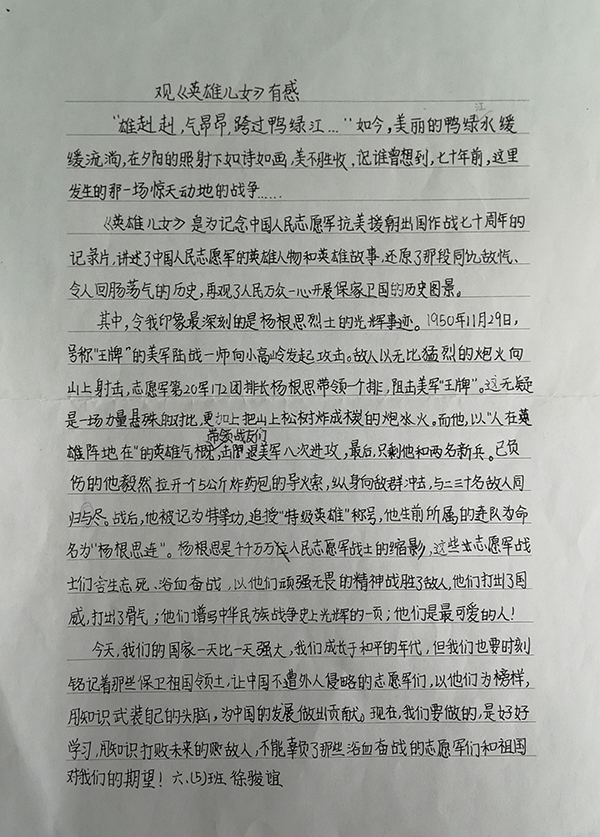 观《英雄儿女》有感
"雄赳赳,气昂昂,跨过鸭绿江…"如今,美丽的鸭绿江水缓
缓流淌,在夕阳的照射下如诗如画,美不胜收,记谁曾想到,七十年前,这里
发生的那一场惊天动地的战争……
《英雄儿女》是为记念中国人民志愿军抗美援朝出国作战七十周年的
记录片,讲述了中国人民志愿军的英雄人物和英雄故事,还原了那段同仇敌忾、
令人回肠荡气的历史,再观了人民万众一心开展保家卫国的历史图景。
其中,令我印象最深刻的是杨根思烈士的光辉事迹。1950年11月29日,
号称"王牌"的美军陆战一师向小高岭发起攻击。敌人以无比猛烈的炮火向
山上射击,志愿军第20军172团排长杨根思带领一个排,阻击美军"王牌"。这无疑
是一场力量悬殊的对比,更加上把山上松树炸成木炭的炮火。而他,以"人在英
雄阵地在"的英雄气概,带领战友们击退美军八次进攻,最后,只剩他和两名新兵。已负
伤的他毅然拉开个5公斤炸药包的导火索,纵身向敌群冲去,与二三十名敌人同
归与尽。战后,他被记为特等功,追授"特级英雄"称号,他生前所属的连队为命
名为"杨根思连"。杨根思是千千万万人民志愿军战士的缩影,这些志愿军战
士们舍生忘死、浴血奋战,以他们顽强无畏的精神战胜了敌人,他们打出了国
威,打出了骨气;他们谱写中华民族战争史上光辉的一页;他们是最可爱的人!
今天,我们的国家一天比一天强大,我们成长于和平的年代,但我们也要时刻
铭记着那些保卫祖国领土,让中国不遭外人侵略的志愿军们,以他们为榜样,
用知识武装自己的头脑,为中国的发展做出贡献。现在,我们要做的,是好好
学习,用知识打败未来的敌人,不能辜负了那些浴血奋战的志愿军们和祖国
对我们的期望!六.(5)班 徐骏谊